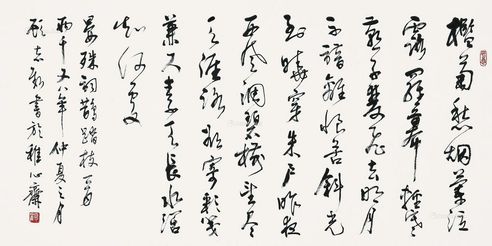 檻菊愁烟蘭泣
露羅幕輕寒
燕子雙飛去明月
不諳離恨苦斜光
到曉穿朱戶昨夜
西風凋碧樹望盡
天涯路欲寄彩箋
兼尺素山長水闊
知何處
晏殊詞鵲踏枝一首
兩千又八年仲夏之月
志新書於心齋